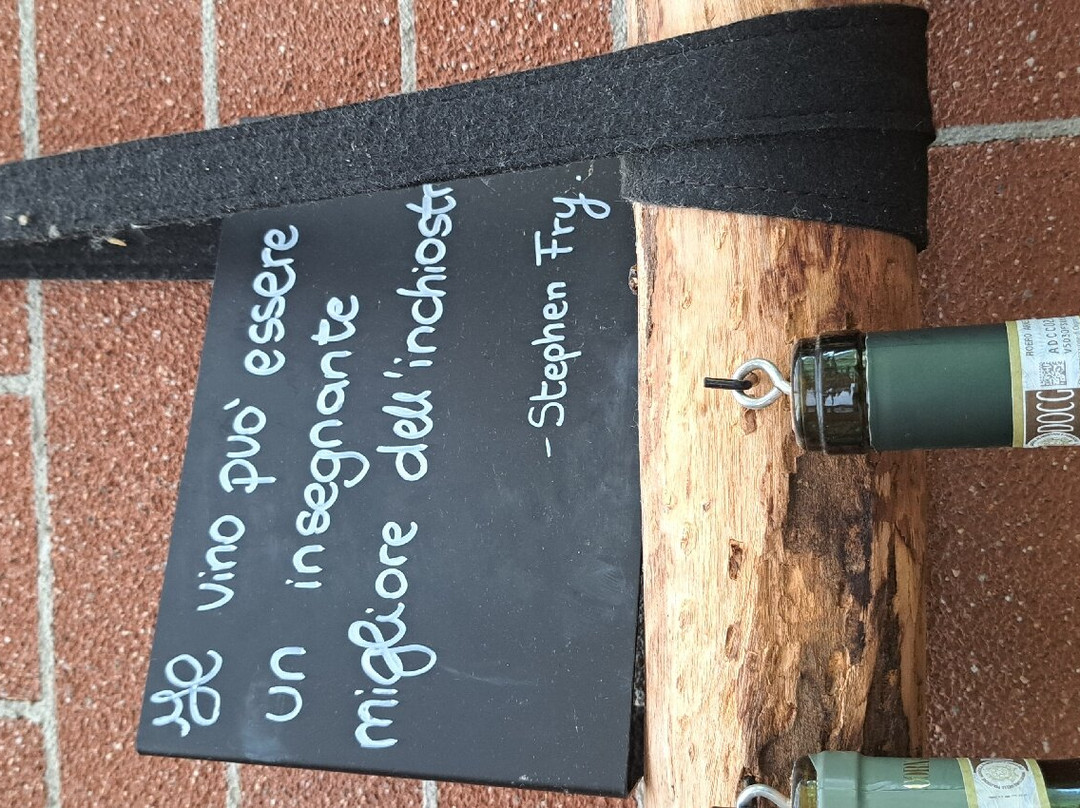 Il vino può essere
un insegnante
migliore dell'inchiostr
- Stephen Fry.
ROERO
DOCG